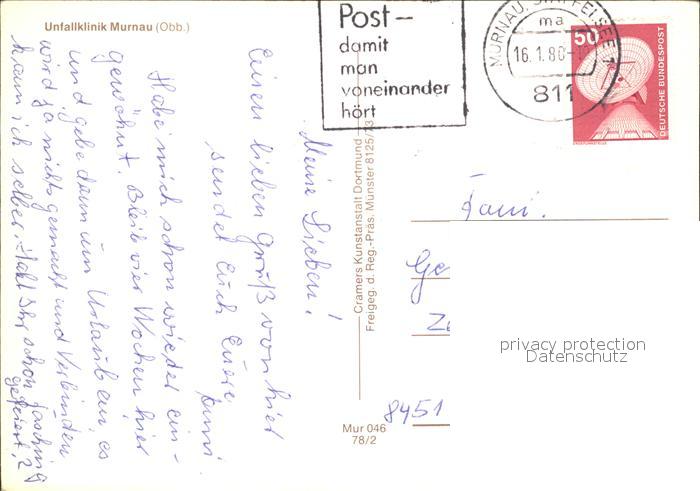 Unfallklinik Murnau (Obb.)
Post –
damit
man
voneinander
hört
MURNAU, STAFFELSEE 1
ma
16.1.80
811
50
DEUTSCHE BUNDESPOST
Meine Lieben!
Einen lieben Gruß von hier
sendet Euch Eure
Habe mich schon wieder ein-
gewöhnt. Bleib vier Wochen hier
und gehe dann in Urlauben, es
wird ja nichts gemacht und Verbinden
kann ich selber. Habt Ihr schon Fasching
gefeiert?
Cramers Kunstanstalt Dortmund
Freigeg. d. Reg.-Präs. Münster 8125/73
Mur 046
78/2
Fam.
Ge
8451
privacy protection
Datenschutz